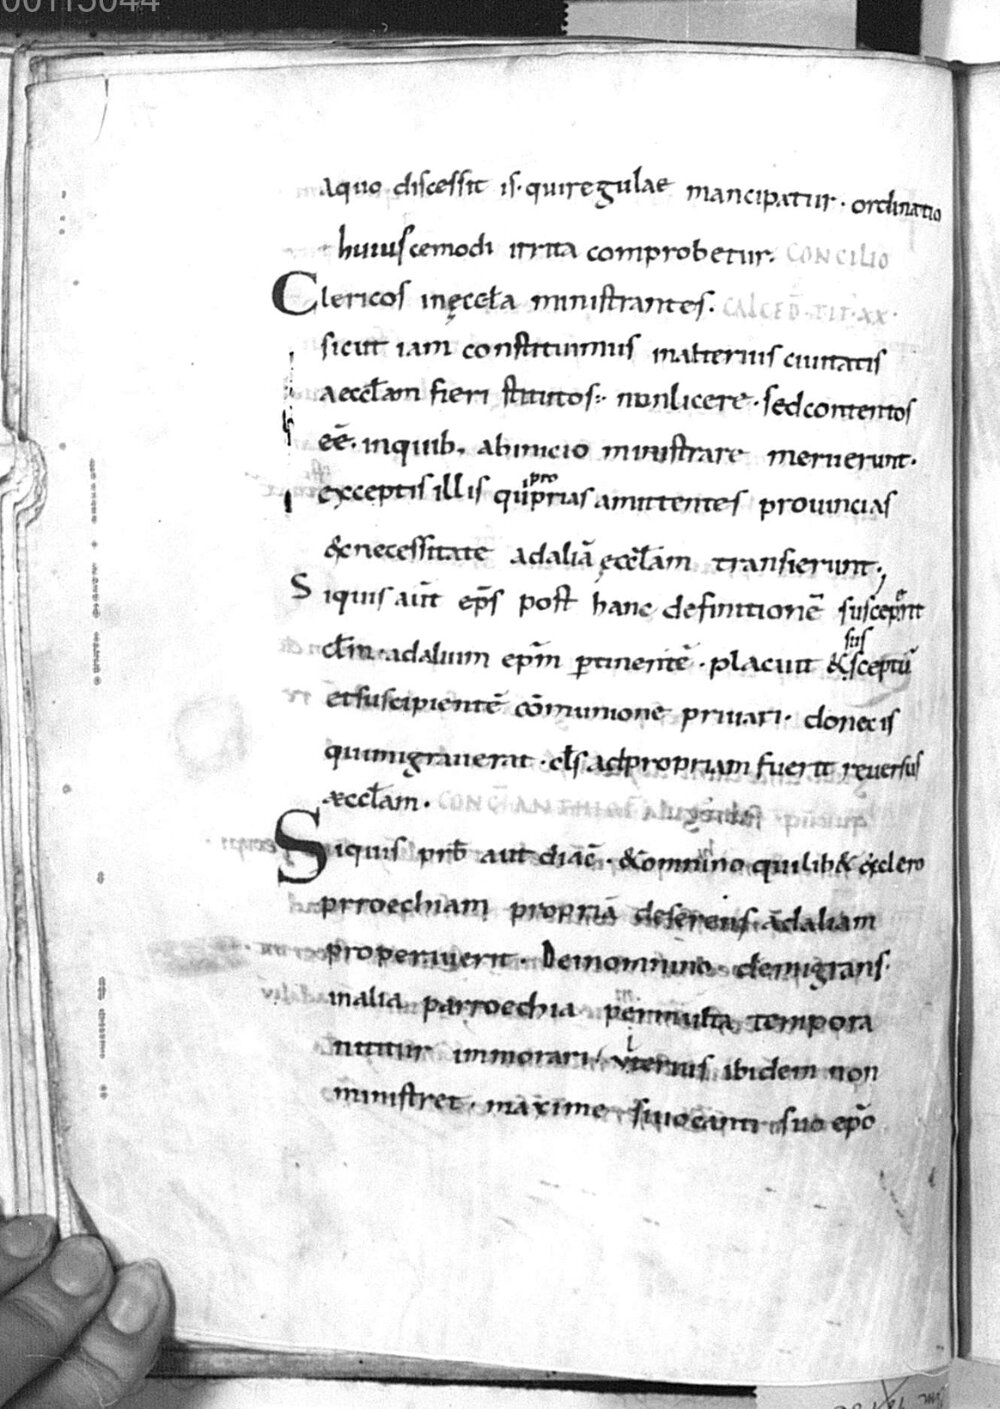 00115044
aquo discessit is· quiregulae mancipatur· ordinatio
huiuscemodi irrita comprobetur. CONCILIO
Clericos inęccła ministrantes. CALCED̄·TIT·XX·
sicut iam constituimus inalterius ciuitatis
aecclam fieri statutos· nonlicere· sedcontentos
eē· inquib, abinicio ministrare meruerunt·
exceptis illis qui pro prias amittentes prouincias
&necessitate adaliā ęccłam transierunt;
Siquis aūt ep̄s post hanc definitionē susceperit
cłm· adalium ep̄m ptinentē· placuit & susceptū
etsuscipientē cōmunione priuari· donec is
quimigrauerat· cłs adpropriam fuerit reuersus
æccłam. CONC̄ ANTHIOC̄
Siquis prb̄ aut diac̄· &omnino quilib& exclero
prroechiam propriā deserens adaliam
properuerit· Deinomnino demigrans·
inalia parroechia permulta tempora
nititur inmorari· vlterius ibidem non
ministret· maxime siuocanti suo ep̄o